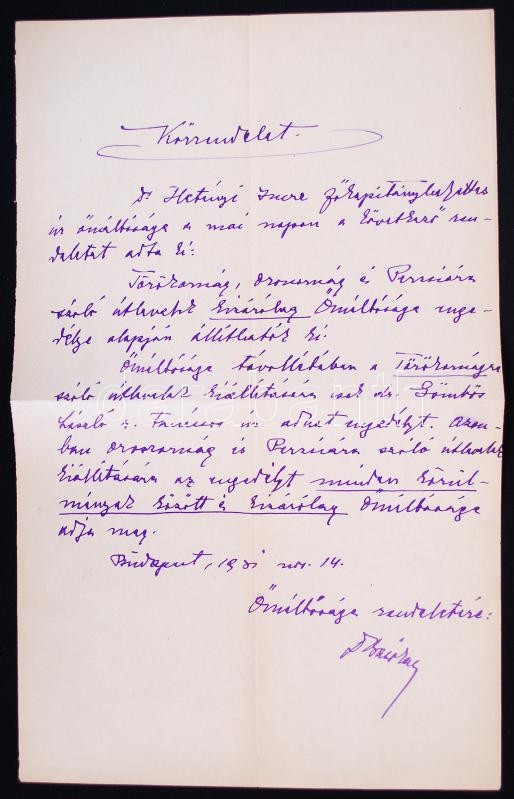 Körrendelet.
Dr Hetényi Imre főkapitányhelyettes
úr őméltósága a mai napon a következő ren-
deletet adta ki:
Törökország, oroszország és Perzsiára
szóló útlevelek kizárólag Őméltósága enge-
délye alapján állíthatók ki.
Őméltósága távollétében a Törökországra
szóló útlevelek kiállítására csak dr. Gömbös
László r. tanácsos úr adhat engedélyt. Azon-
ban oroszország és Perzsiára szóló útlevelek
kiállítására az engedélyt minden körül-
mények között és kizárólag Őméltósága
adja meg.
Budapest, 1931 nov. 14.
Őméltósága rendeletére:
darabanth